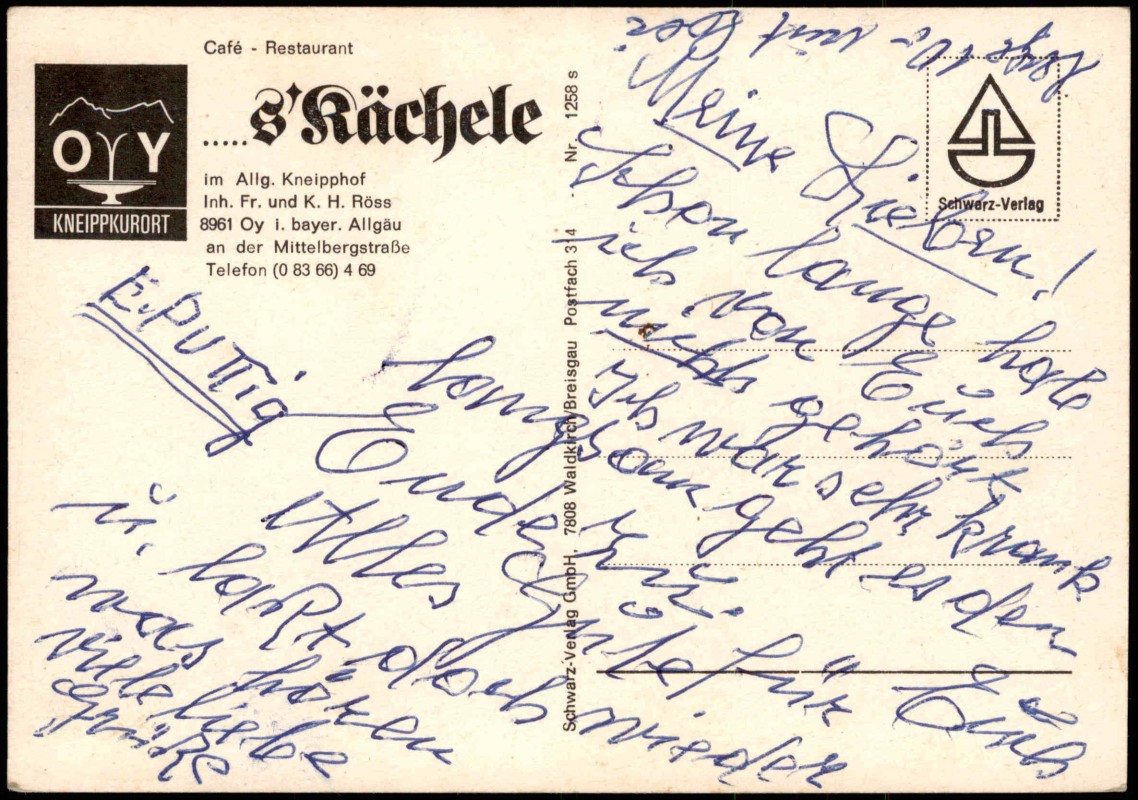 Café - Restaurant
..... s'Kächele
OY
KNEIPPKURORT
im Allg. Kneipphof
Inh. Fr. und K. H. Röss
8961 Oy i. bayer. Allgäu
an der Mittelbergstraße
Telefon (0 83 66) 4 69
Schwarz-Verlag GmbH, 7808 Waldkirch/Breisgau Postfach 314 - Nr. 1258 s
Schwarz-Verlag
Meine Lieben!
Schon lange habe
ich von Euch
nichts gehört.
Ich war sehr krank
Langsam geht es dem
Ende zu.
Alles Gute für Euch
u. laßt doch wieder
was hören
viele liebe
Grüße
E. Puttig